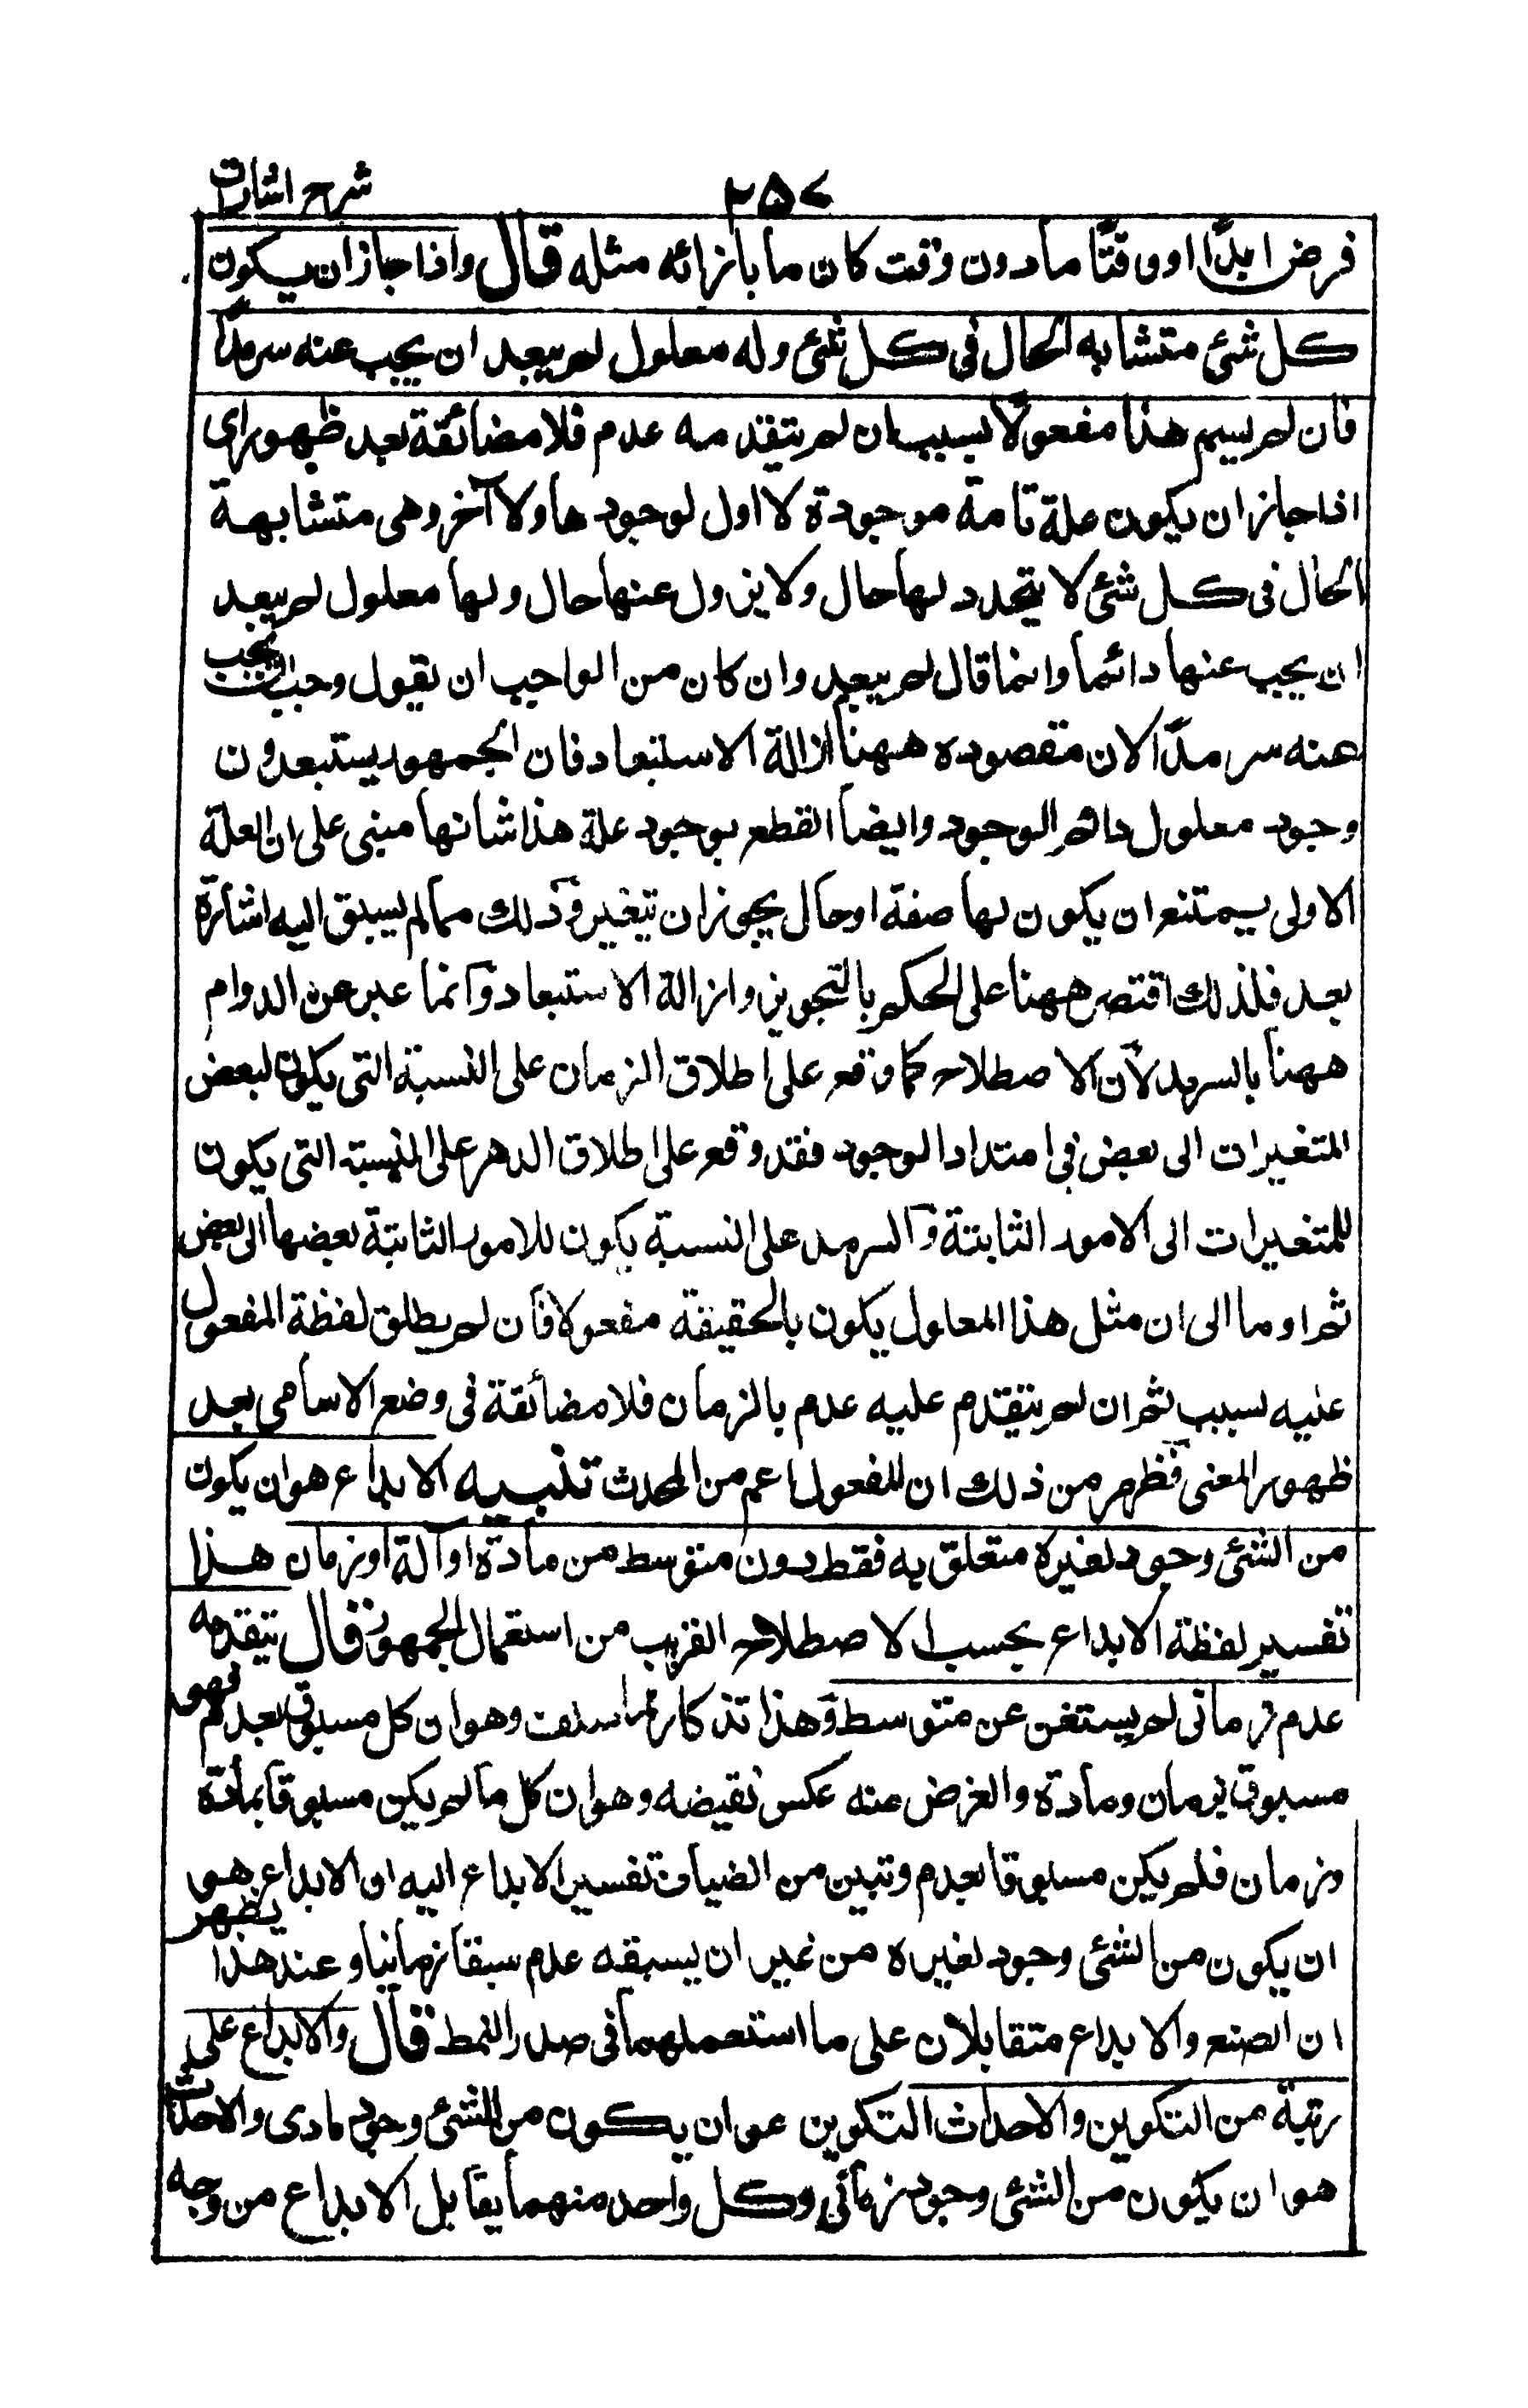 شرح اشارات
٢٥٧
فرض ابدًا او وقتًا ما دون وقت كان ما بازائه مثله قال واذا جاز ان يكون
كل شئ متشابه الحال فى كل شئ وله معلول لم يبعد ان يجب عنه سرمدًا
فان لم يسم هذا مفعولًا بسبب ان لم يتقدمه عدم فلا مضائقة بعد ظهور اى
اذا جاز ان يكون علة تامة موجودة لا اول لوجودها ولا آخر وهى متشابهة
الحال فى كل شئ لا يتجدد لها حال ولا يزول عنها حال ولها معلول لم يبعد
ان يجب عنها دائما وانما قال لم يبعد وان كان من الواجب ان يقول وجب ان يجب
عنه سرمدًا لان مقصوده ههنا ازالة الاستبعاد فان الجمهور يستبعدون
وجود معلول دائم الوجود وايضا القطع بوجود علة هذا شانها مبنى على ان العلة
الاولى يمتنع ان يكون لها صفة او حال يجوز ان تتغير وذلك مما لم يسبق اليه اشارة
بعد فلذلك اقتصر ههنا على الحكم بالتجويز وازالة الاستبعاد وانما عبر عن الدوام
ههنا بالسرمد لان الاصطلاح كما وقع على اطلاق الزمان على النسبة التى يكون لبعض
المتغيرات الى بعض فى امتداد الوجود فقد وقع على اطلاق الدهر على النسبة التى يكون
للمتغيرات الى الامور الثابتة والسرمد على النسبة يكون للامور الثابتة بعضها الى بعض
ثم اوما الى ان مثل هذا المعلول يكون بالحقيقة مفعولا فان لم يطلق لفظة المفعول
عليه بسبب ثم ان لم يتقدم عليه عدم بالزمان فلا مضائقة فى وضع الاسامى بعد
ظهور المعنى فظهر من ذلك ان المفعول اعم من المحدث تنبيه الابداع هو ان يكون
من الشئ وجود لغيره متعلق به فقط دون متوسط من مادة او آلة او زمان هذا
تفسير لفظة الابداع بحسب الاصطلاح القريب من استعمال الجمهور قال يتقدمه
عدم زمانى لم يستغن عن متوسط وهذا تذكار لما سلف وهو ان كل مسبوق بعدم فهو
مسبوق بزمان ومادة والغرض منه عكس نقيضه وهو ان كل ما لم يكن مسبوقا بمادة
وزمان فلم يكن مسبوقا بعدم وتبين من انضياف تفسير الابداع اليه ان الابداع هو
ان يكون من الشئ وجود لغيره من غير ان يسبقه عدم سبقا زمانيا وعند هذا يظهر
ان الصنع والابداع متقابلان على ما استعملهما فى صدر النمط قال والابداع على
رتبة من التكوين والاحداث التكوين هو ان يكون من الشئ وجود مادى والاحداث
هو ان يكون من الشئ وجود زمانى وكل واحد منهما يقابل الابداع من وجه